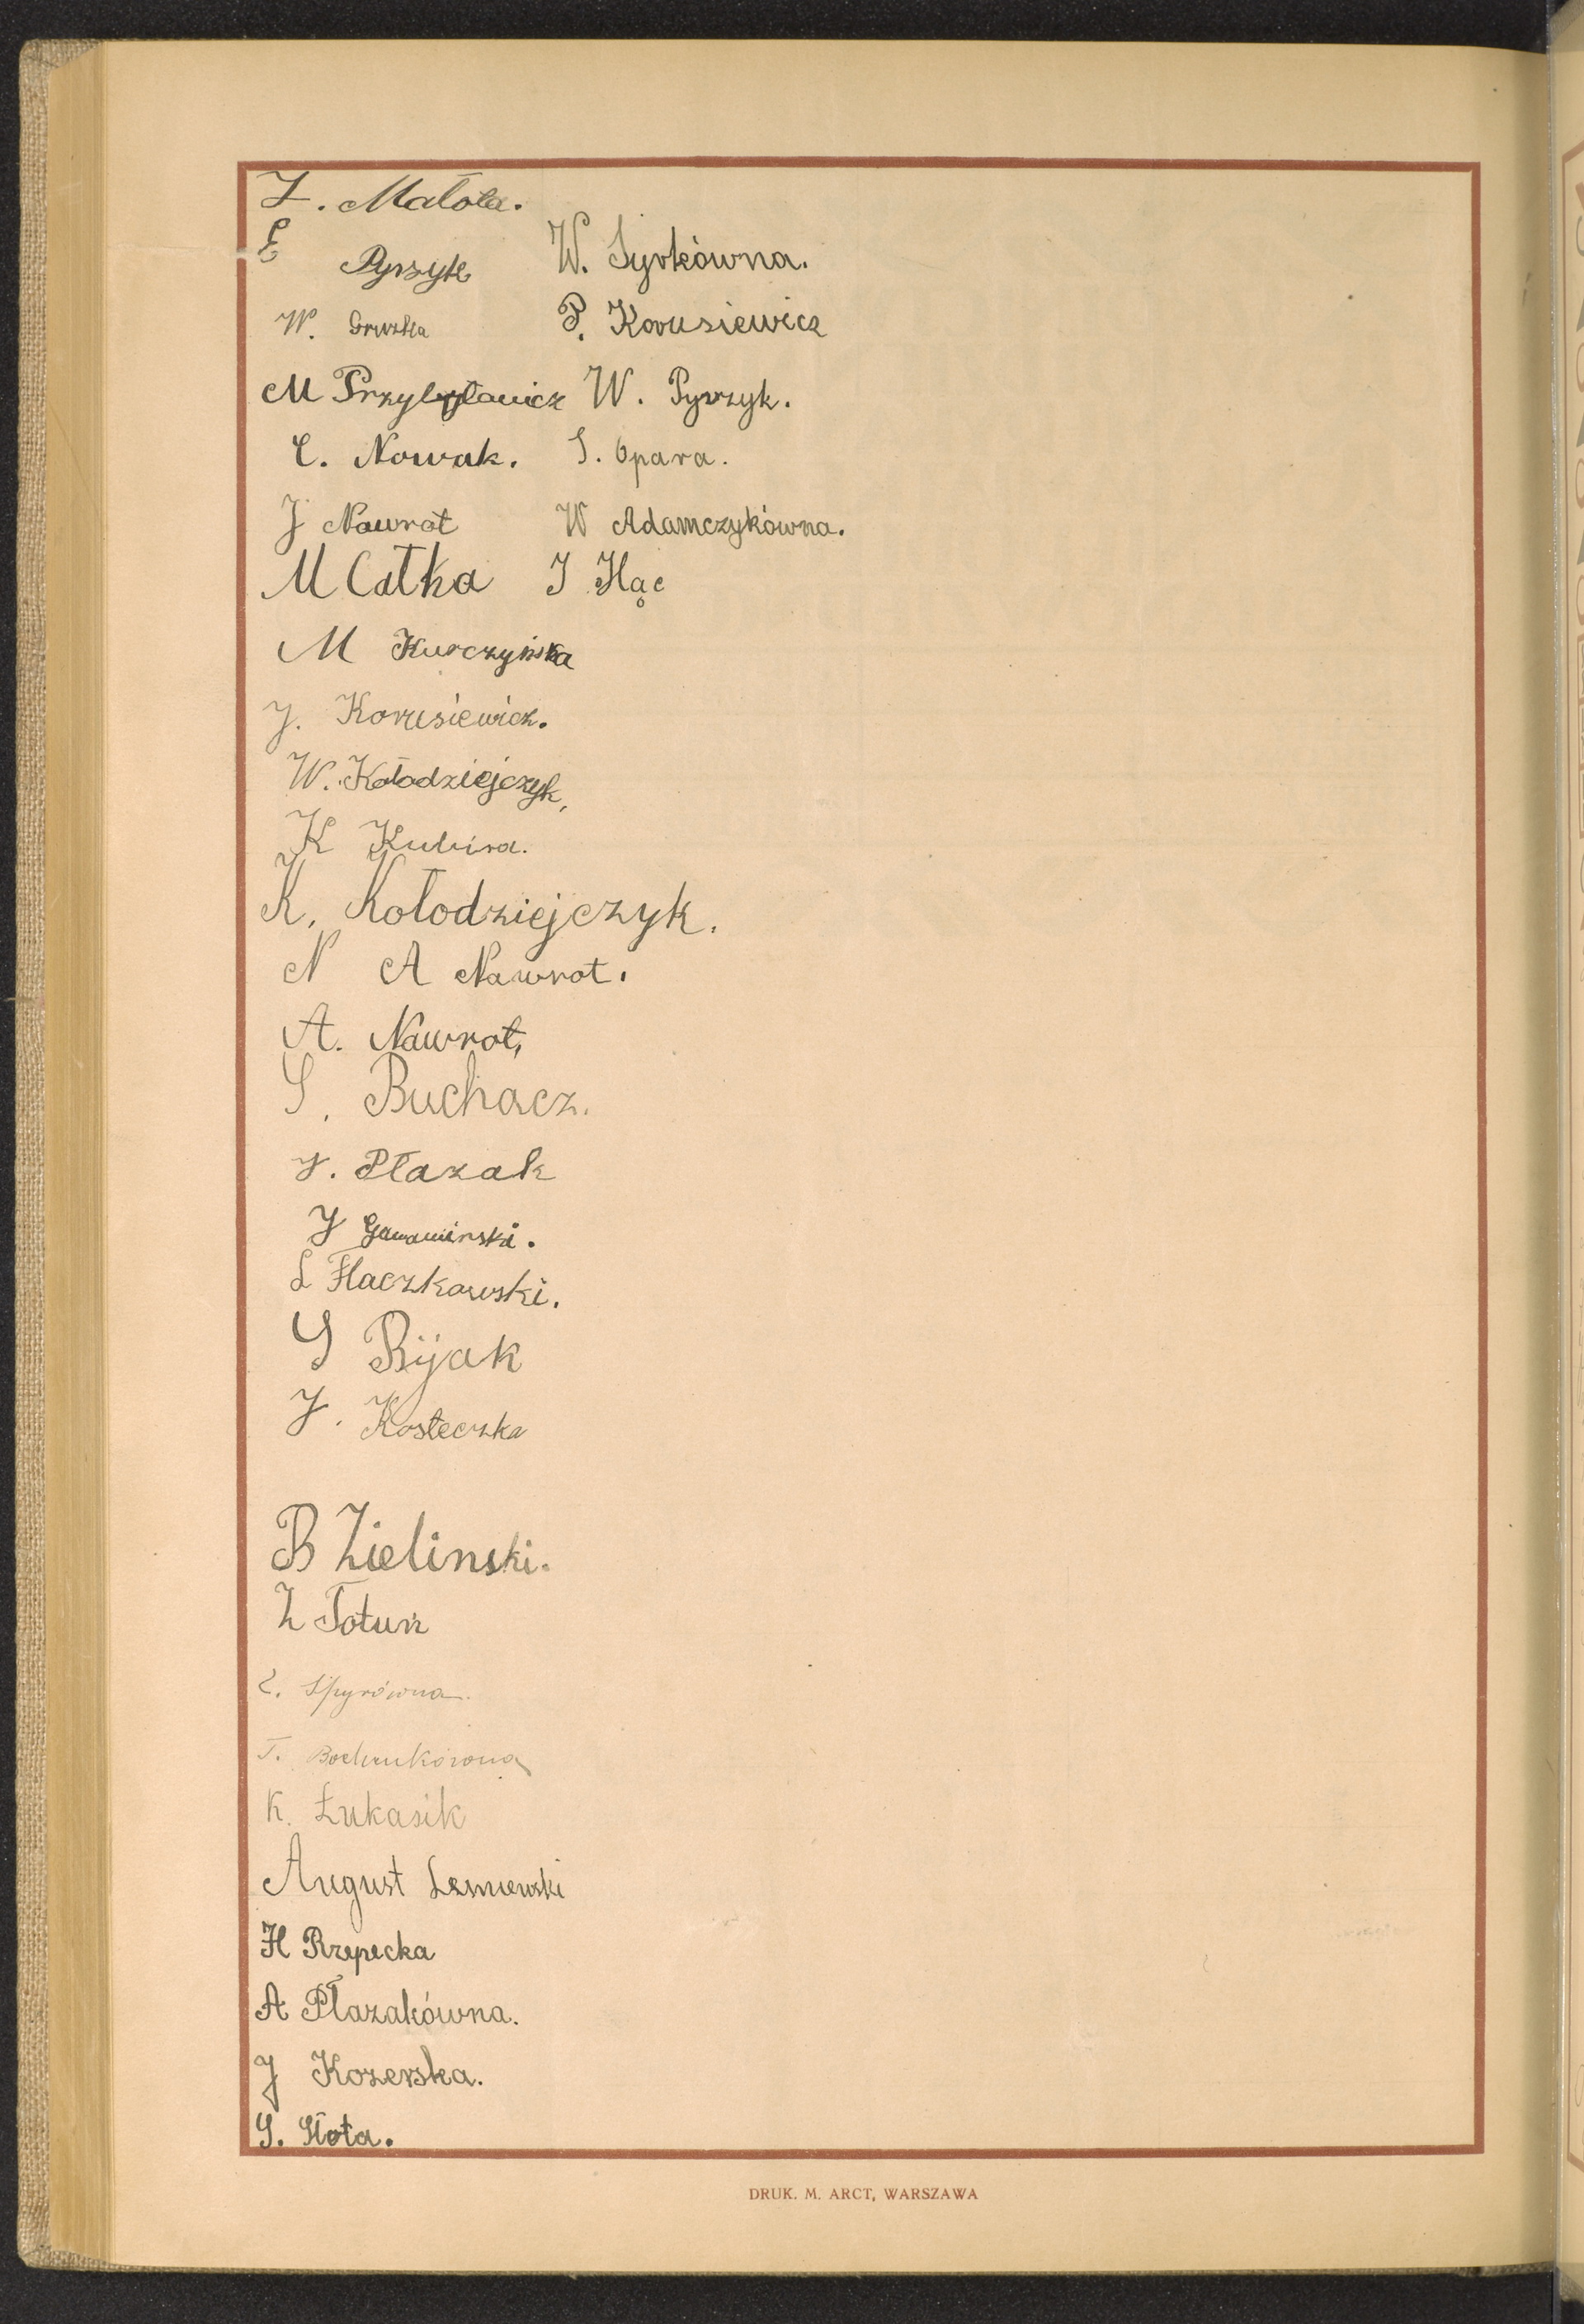 Z. Małota.
E Pyrzyk W. Syrkówna.
W. Gruszka P. Korusiewicz
M Przybyławicz W. Pyrzyk.
C. Nowak. S. Opara.
J Nawrot W Adamczykówna.
M Całka J Hąc
M Kurczyńska
J. Korusiewicz.
W. Kołodziejczyk,
K Kubira.
K. Kołodziejczyk.
N A Nawrot.
A. Nawrot,
S. Buchacz.
J. Płazak
J
L Flaczkowski.
S Bijak
J. Kosteczka
B Zielinski.
Z Totuń
Z. Spyrówna.
T.
K. Łukasik
August Leśniewski
H Rzepecka
A Płazakówna.
J Kozerska.
S. Słota.
DRUK. M. ARCT, WARSZAWA